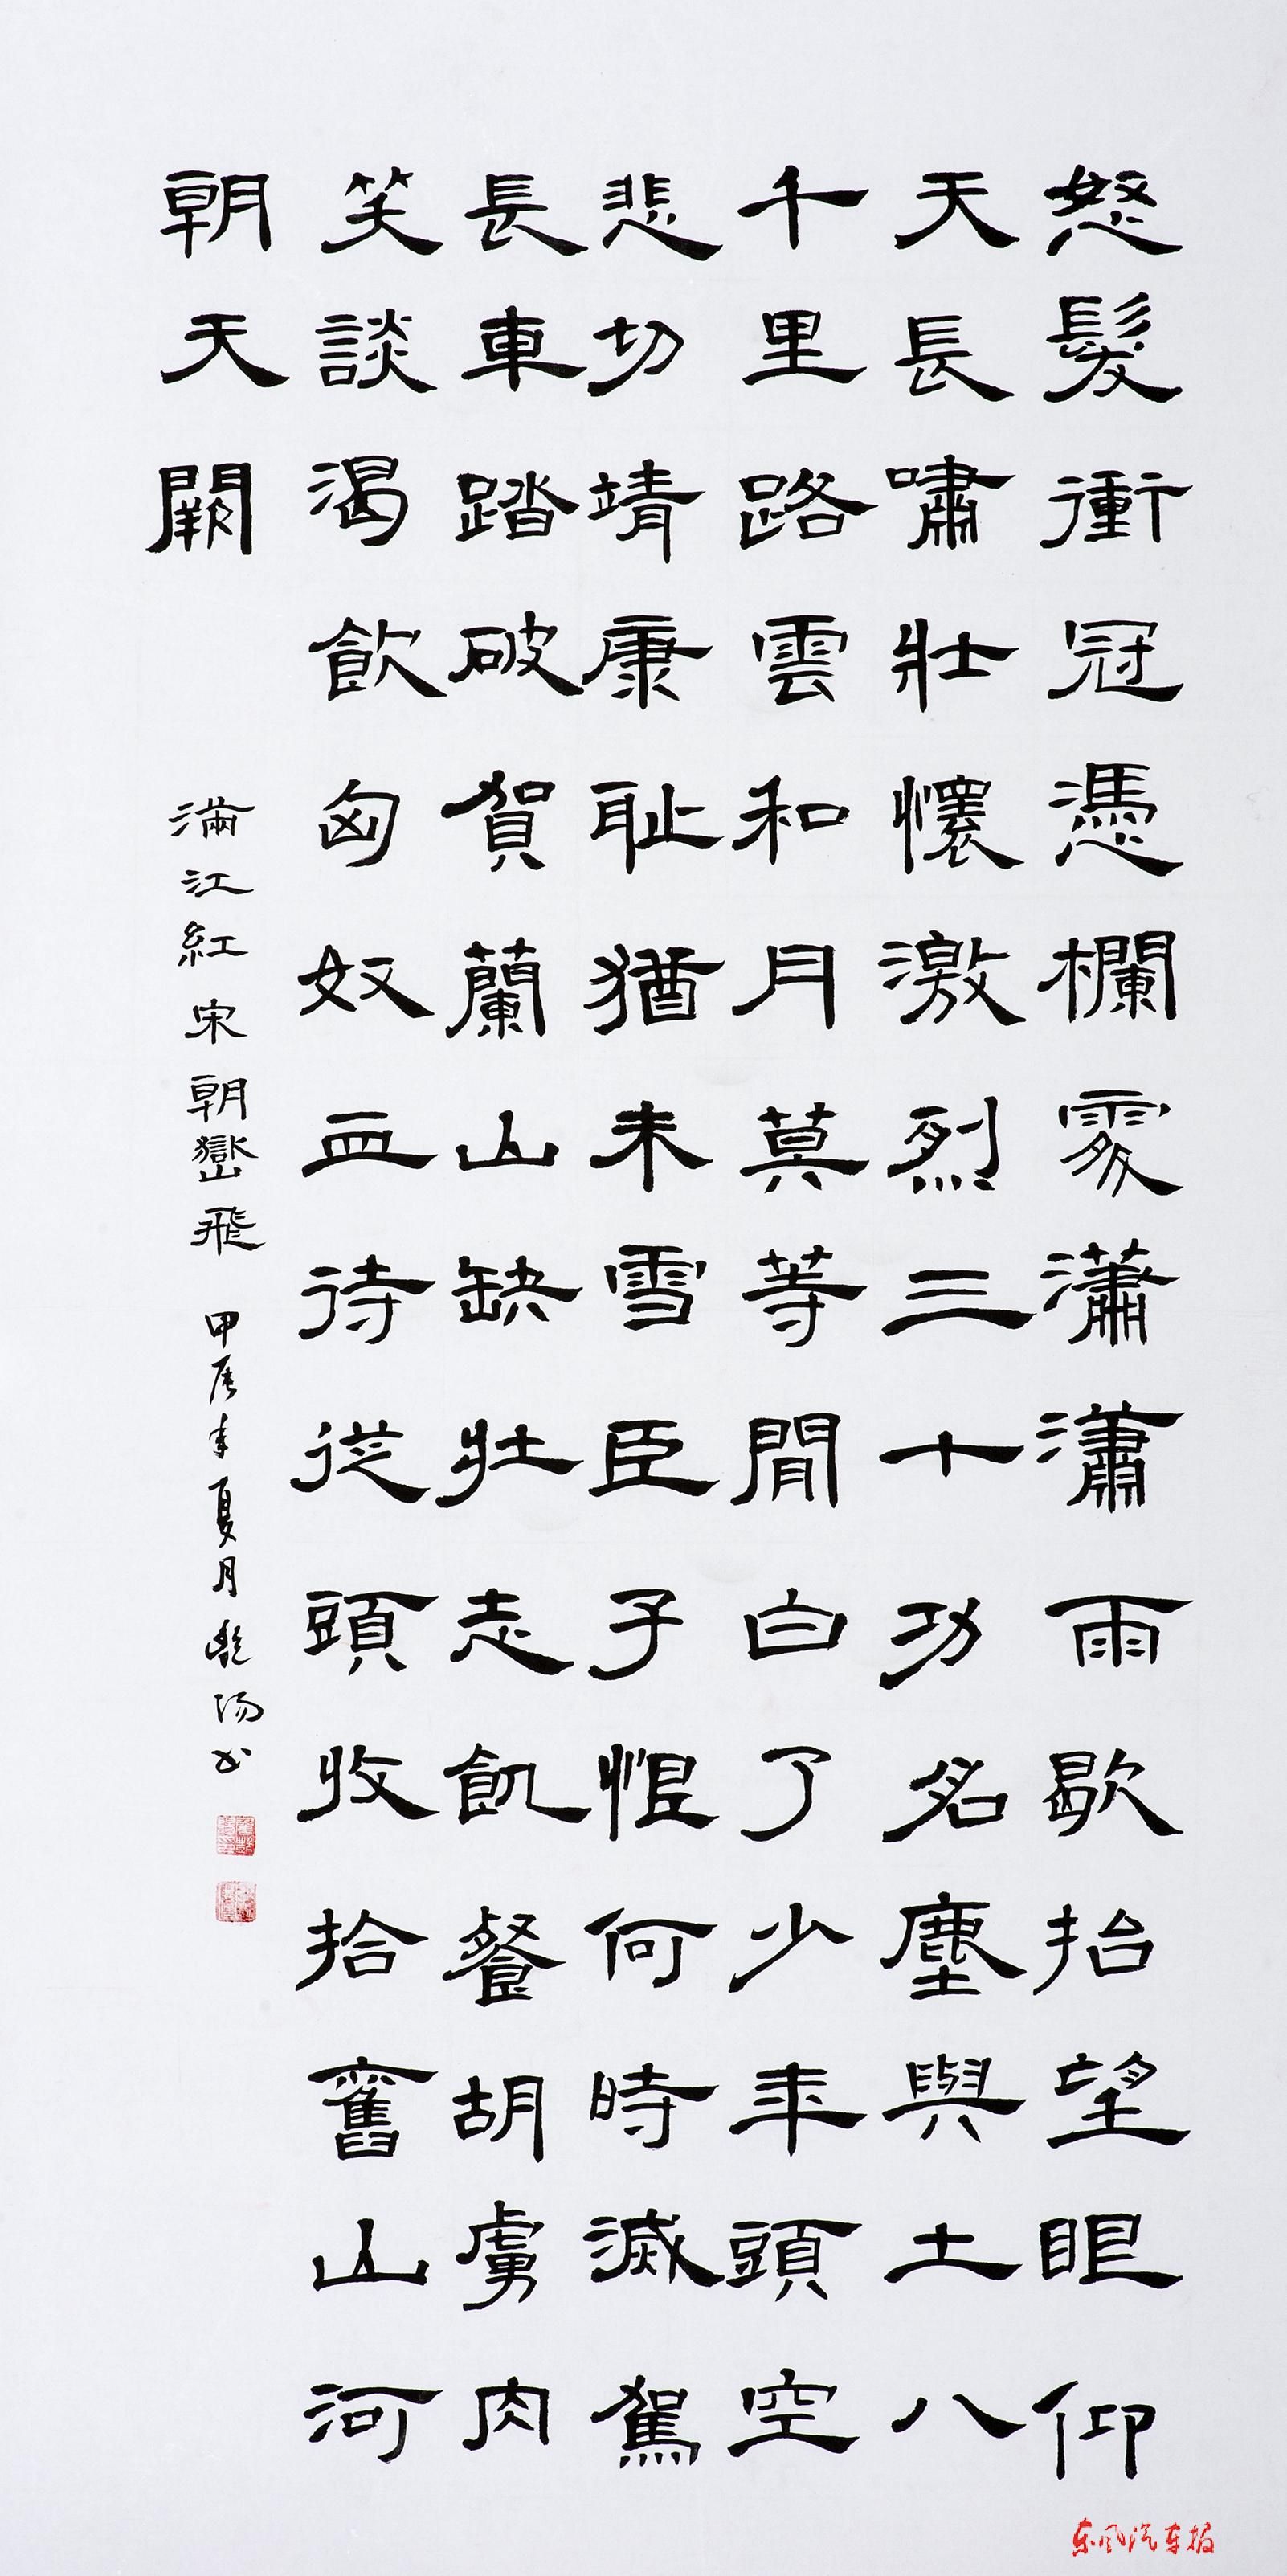 怒髮衝冠憑欄處瀟瀟雨歇抬望眼仰
天長嘯壯懷激烈三十功名塵與土八
千里路雲和月莫等閒白了少年頭空
悲切靖康耻猶未雪臣子恨何時滅駕
長車踏破賀蘭山缺壯志飢餐胡虜肉
笑談渴飲匈奴血待從頭收拾舊山河
朝天闕
滿江紅 宋朝嶽飛 甲辰年夏月 书
东风汽车报